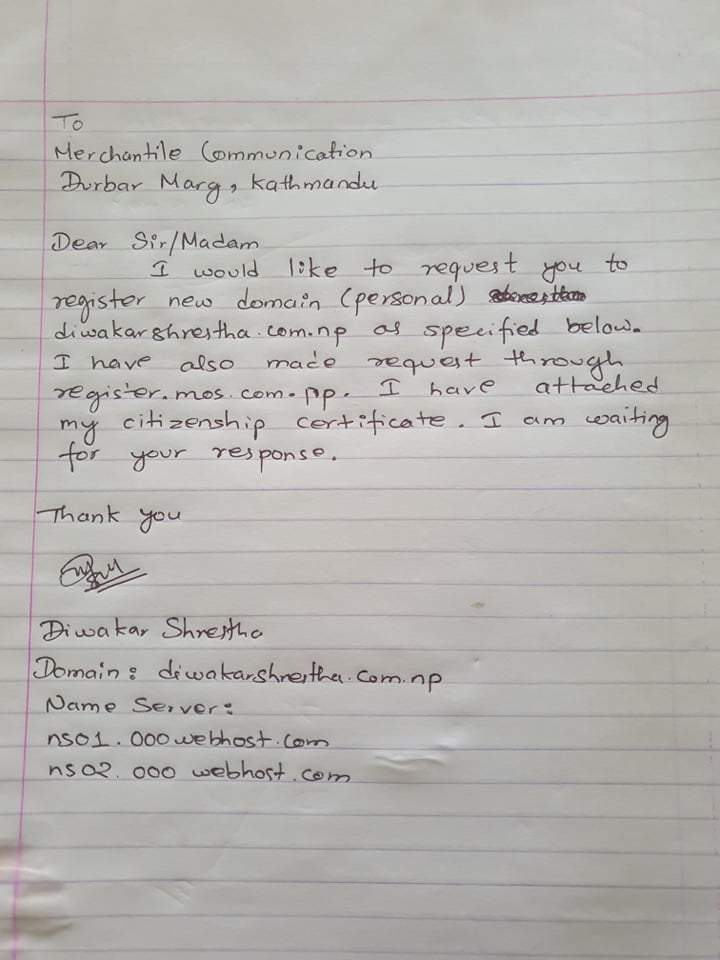 To
Merchantile Communication
Durbar Marg, Kathmandu
Dear Sir/Madam
I would like to request you to
register new domain (personal)
diwakarshrestha.com.np as specified below.
I have also made request through
register.mos.com.pp. I have attached
my citizenship certificate. I am waiting
for your response.
Thank you
Diwakar Shrestha
Domain: diwakarshrestha.com.np
Name Server:
ns01.000webhost.com
ns02.000 webhost.com